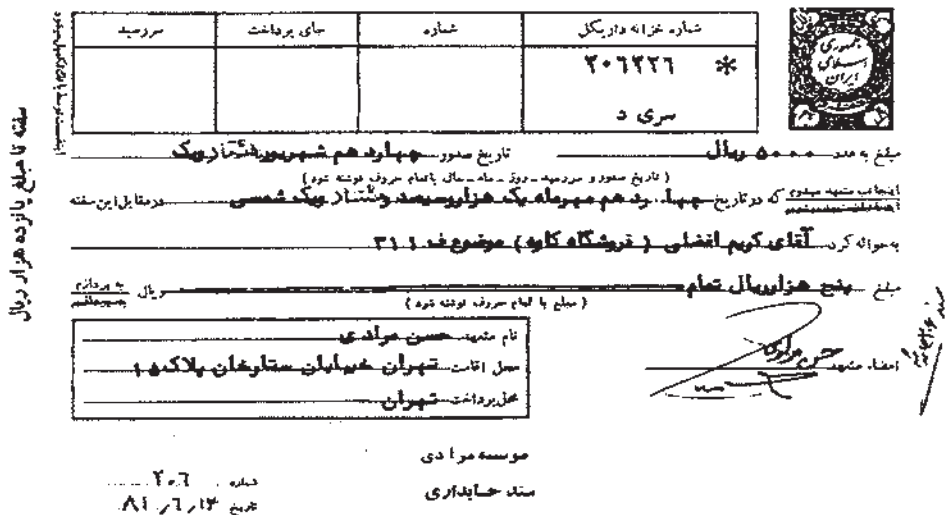 سررسید
جای پرداخت
شماره
شماره خزانه داریکل
۲۰۶۲۲۶ *
سری د
جمهوری اسلامی ایران
سفته تا مبلغ پانزده هزار ریال
مبلغ به عدد ۵۰۰۰ ریال تاریخ صدور چهاردهم شهریور هشتاد ویک
( تاریخ صدور و سررسید - روز - ماه - سال باتمام حروف نوشته شود )
اینجانب متعهد میشوم که در تاریخ چهاردهم مهرماه یک هزاروسیصد وهشتاد ویک شمسی در مقابل این سفته
به حواله کرد آقای کریم افضلی ( فروشگاه کاوه ) موضوع ف ۳۱۱
مبلغ پنج هزارریال تمام ریال به پردازم
( مبلغ با تمام حروف نوشته شود )
نام متعهد حسن مرادی
محل اقامت تهران خیابان ستارخان پلاک ۱۵
محل پرداخت تهران
امضاء متعهد حسن مرادی
موسسه مرادی
سند حسابداری
شماره ۲۰۶
تاریخ ۸۱٫۶٫۱۴